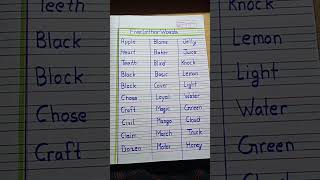 Five Letter Words
Apple Blame Jelly
Heart Baker Juice
Teeth Blind Knock
Black Basic Lemon
Block Cover Light
Chose Loyal Water
Craft Magic Green
Civil Mango Cloud
Claim March Truck
Dozen Motor Honey
Teeth
Black
Block
Chose
Craft
Knock
Lemon
Light
Water
Green